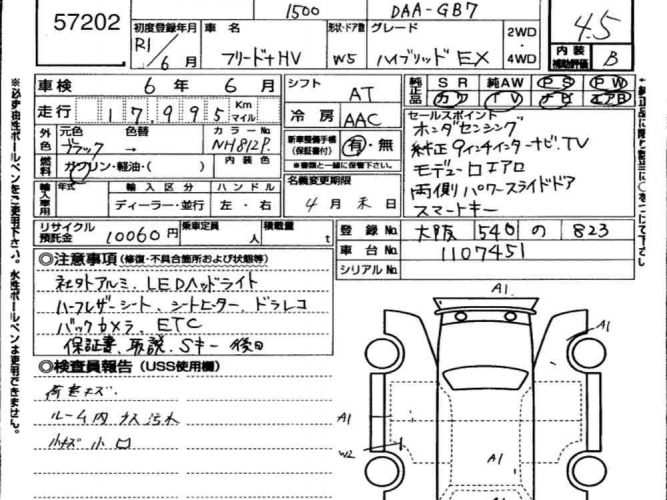 57202
1500 DAA-GB7
初度登録年月 車名 形状・ドア数 グレード 2WD・4WD
R1/6月 フリード+HV W5 ハイブリッド EX
4.5
内装補助評価 B
車検 6年 6月
走行 17,995 Km マイル
シフト AT
冷房 AAC
純正品 SR 純AW PS PW
カワ TV ナビ エアB
外色 元色 色替 カラーNo.
ブラック → NH812P
内装色
燃料 ガソリン・軽油・( )
新車整備手帳(保証書付) 有・無
※書類と一緒に保管下さい。
セールスポイント
ホンダセンシング
純正9インチインターナビ.TV
モデューロエアロ
両側パワースライドドア
スマートキー
輸入車用 年式 輸入区分 ハンドル
ディーラー・並行 左・右
名義変更期限
4月末日
リサイクル預託金 10060円 乗車定員 人 積載量 t
登録No. 大阪 540 の 823
車台No. 1107451
シリアルNo.
◎注意事項(修復・不具合箇所および状態等)
社外アルミ、LEDヘッドライト
ハーフレザーシート、シートヒーター、ドラレコ
バックカメラ、ETC
保証書、取説、Sキー 後日
◎検査員報告(USS使用欄)
荷室キズ
ルーム内 汚れ
小キズ 小凹
A1
A1
A1
W2
A1
A1
※必ず油性ボールペンをご使用下さい。水性ボールペンは使用できません。